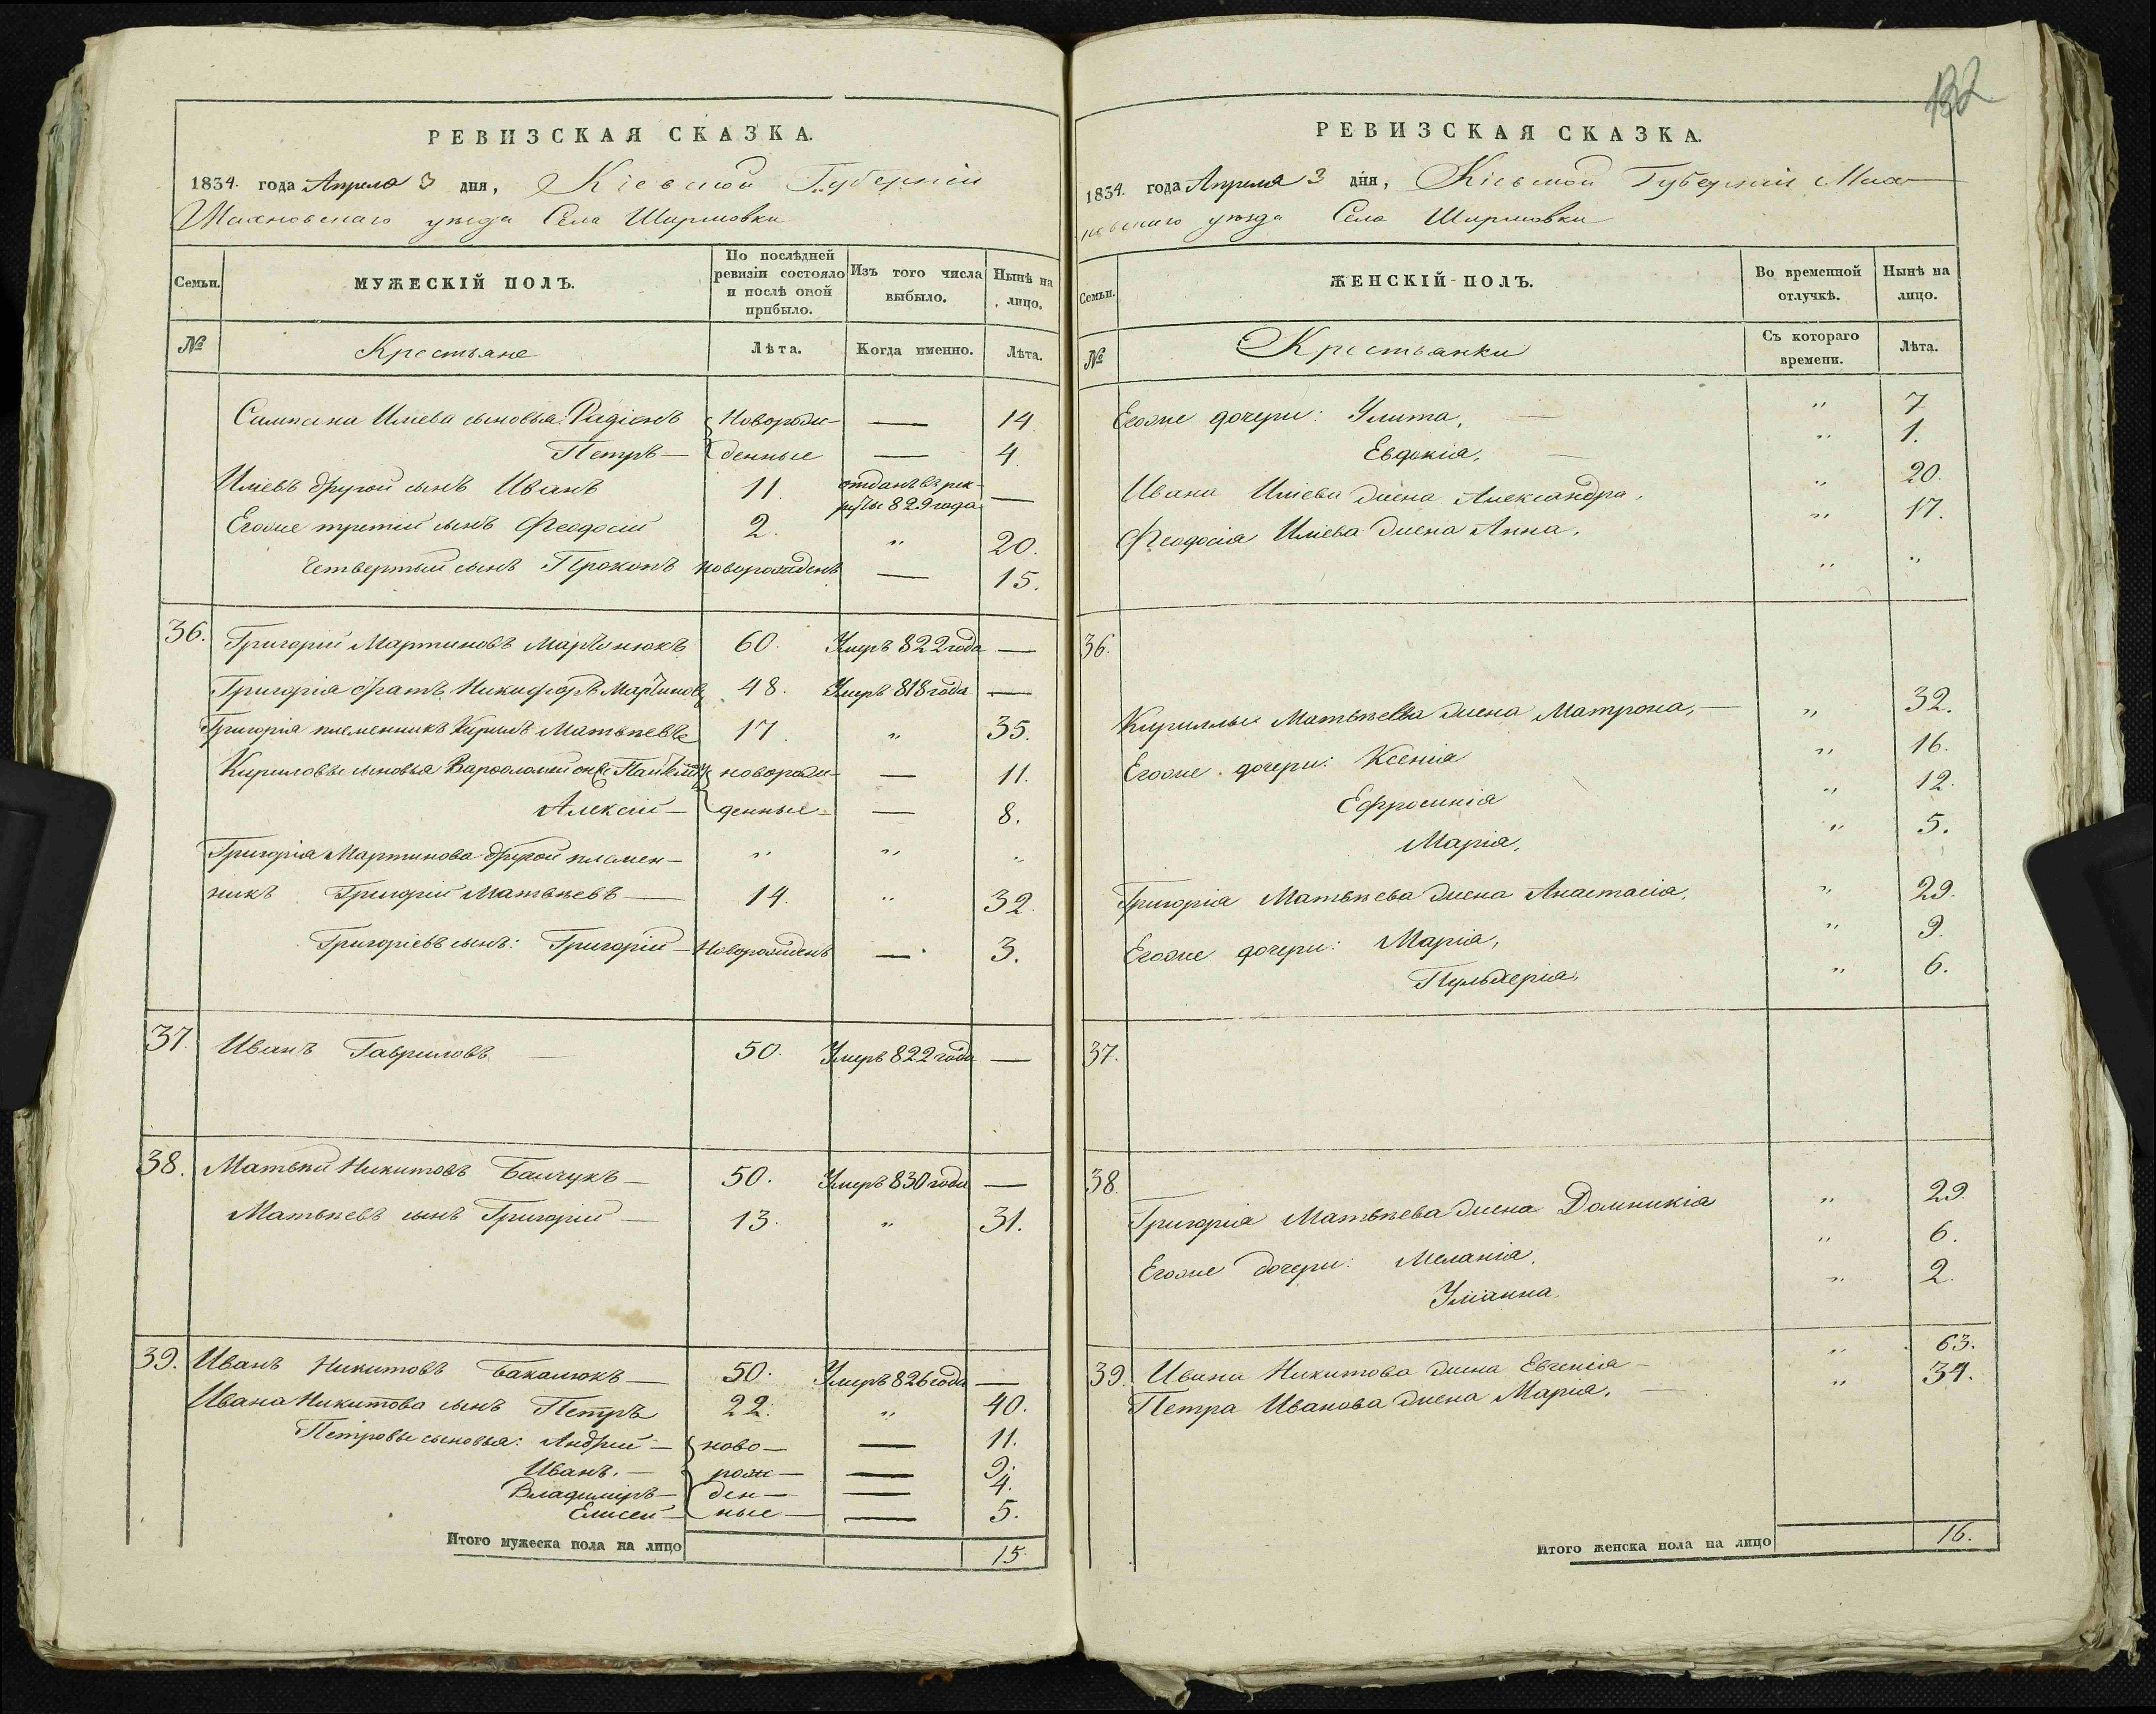 РЕВИЗСКАЯ СКАЗКА.
1834. года Апреля 3 дня, Кіевской Губерніи
Махновскаго уѣзда Села Ширмовки
Семьи. МУЖЕСКІЙ ПОЛЪ. По послѣдней ревизіи состояло и послѣ оной прибыло. Изъ того числа выбыло. Нынѣ на лицо.
№ Крестьяне Лѣта. Когда именно. Лѣта.
Сампсона Иліева сыновья: Радіонъ новорож- — 14
Петръ — денные — 4
Иліевъ другой сынъ Иванъ 11. отданъ въ рек-
руты 829 года —
Егоже третій сынъ Феодосій 2. „ 20.
Четвертый сынъ Прокопъ новорожденъ — 15.
36. Григорій Мартиновъ Мартинюкъ 60. Умеръ 822 года —
Григорія братъ Никифоръ Мартиновъ 48. Умеръ 818 года —
Григорія племенникъ Кирилъ Матвѣевъ 17. „ 35.
Кириловы сыновья Варфоломей новорож- — 11.
Алексій — денные — 8.
Григорія Мартинова другой племен- „ „ „
никъ Григорій Матвѣевъ — 14. „ 32.
Григоріевъ сынъ: Григорій — Новорожденъ — 3.
37. Иванъ Гавриловъ — 50. Умеръ 822 года —
38. Матвѣй Никитовъ Баичукъ — 50. Умеръ 830 года —
Матвѣевъ сынъ Григорій — 13. „ 31.
39. Иванъ Никитовъ Бакалюкъ — 50. Умеръ 826 года —
Ивана Никитова сынъ Петръ 22. „ 40.
Петровы сыновья: Андрей — ново- — 11.
Иванъ. — рож- — 9.
Владимиръ — ден- — 4.
Елисей — ные — — 5.
Итого мужеска пола на лицо 15.
132
РЕВИЗСКАЯ СКАЗКА.
1834. года Апреля 3 дня, Кіевской Губерніи Мах-
новскаго уѣзда Села Ширмовки
Семьи. ЖЕНСКІЙ ПОЛЪ. Во временной отлучкѣ. Нынѣ на лицо.
№ Крестьянки Съ котораго времени. Лѣта.
Егоже дочери: Улита, — „ 7
Евдокія, — „ 1.
Ивана Иліева жена Александра, „ 20.
Феодосія Иліева жена Анна, „ 17.
„ „
36.
Кириллы Матвѣева жена Матрона, — „ 32.
Егоже дочери: Ксенія „ 16.
Ефросинія „ 12.
Марія, „ 5.
Григорія Матвѣева жена Анастасія, „ 29.
Егоже дочери: Марія, „ 9.
Пульхерія, „ 6.
37.
38.
Григорія Матвѣева жена Домникія „ 29.
Егоже дочери: Меланія, „ 6.
Уліанна, „ 2.
39. Ивана Никитова жена Евгенія — „ 63.
Петра Иванова жена Марія. — „ 34.
Итого женска пола на лицо 16.